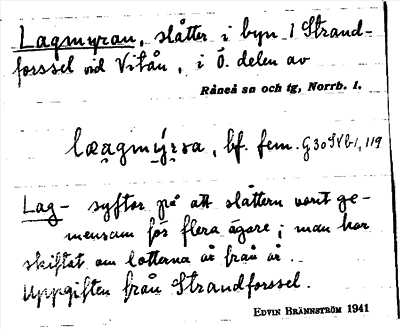 Lagmyran, slåtter i byn 1 Strand-
forssel vid Vitån, i Ö. delen av
Råneå sn och tg, Norrb. l.
læagmýrsa, bf. fem. G30 SVb1, 119
Lag- syftar på att slåttern varit ge-
mensam för flera ägare; man har
skiftat om lotterna år från år.
Uppgiften från Strandforssel.
EDVIN BRÄNNSTRÖM 1941